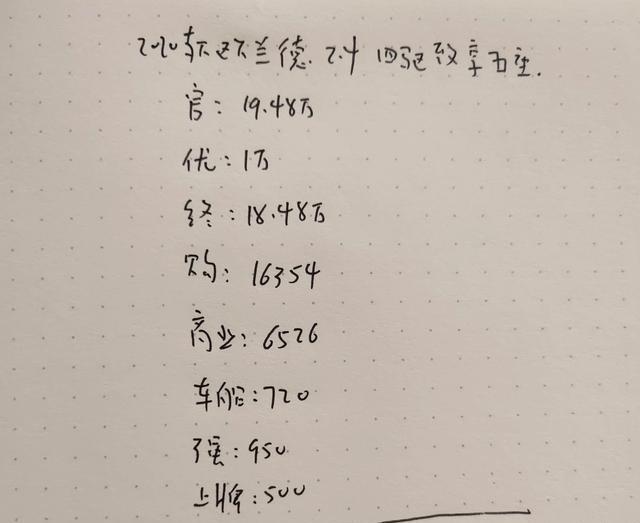 2020款欧蓝德. 2.4 四驱致享五座.
官: 19.48万
优: 1万
终: 18.48万
购: 16354
商业: 6526
车船: 720
强: 950
上牌: 500